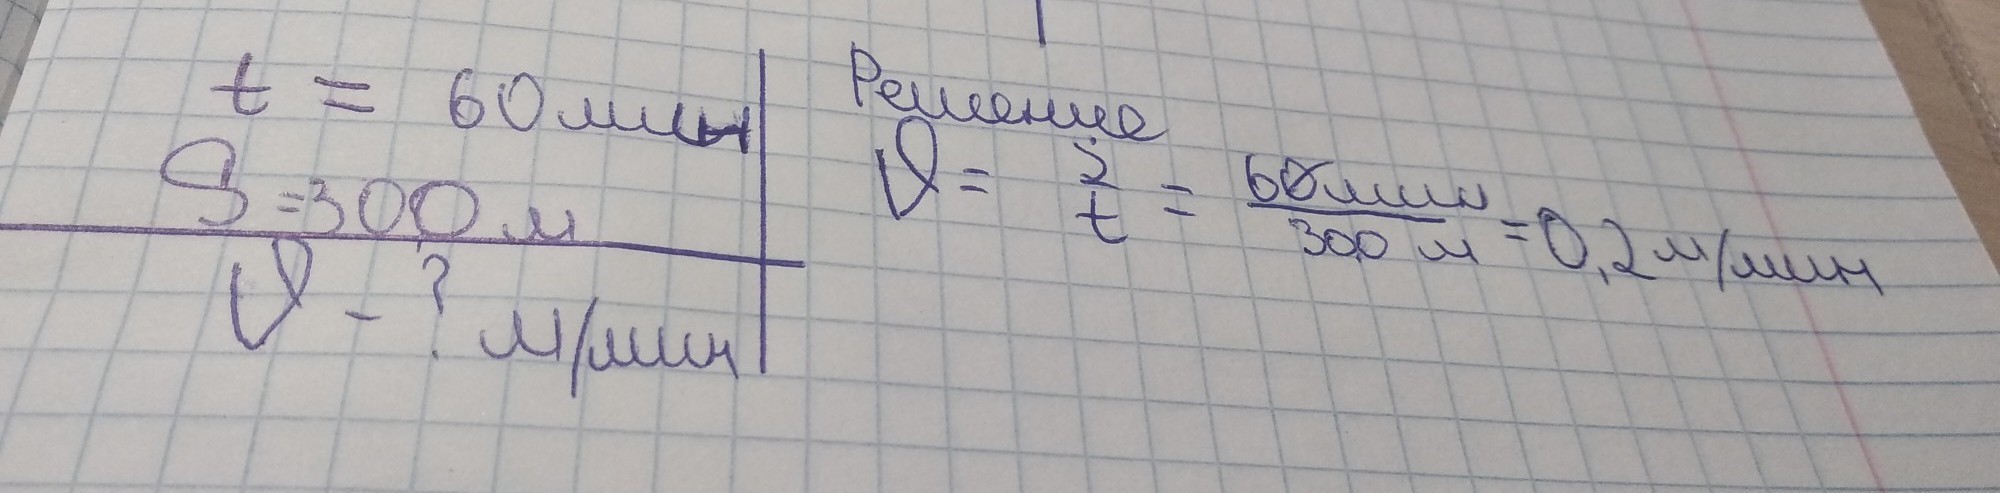 t = 60 мин
S = 300 м
υ - ? м/мин
Решение
υ = S/t = 60мин/300 м = 0,2 м/мин